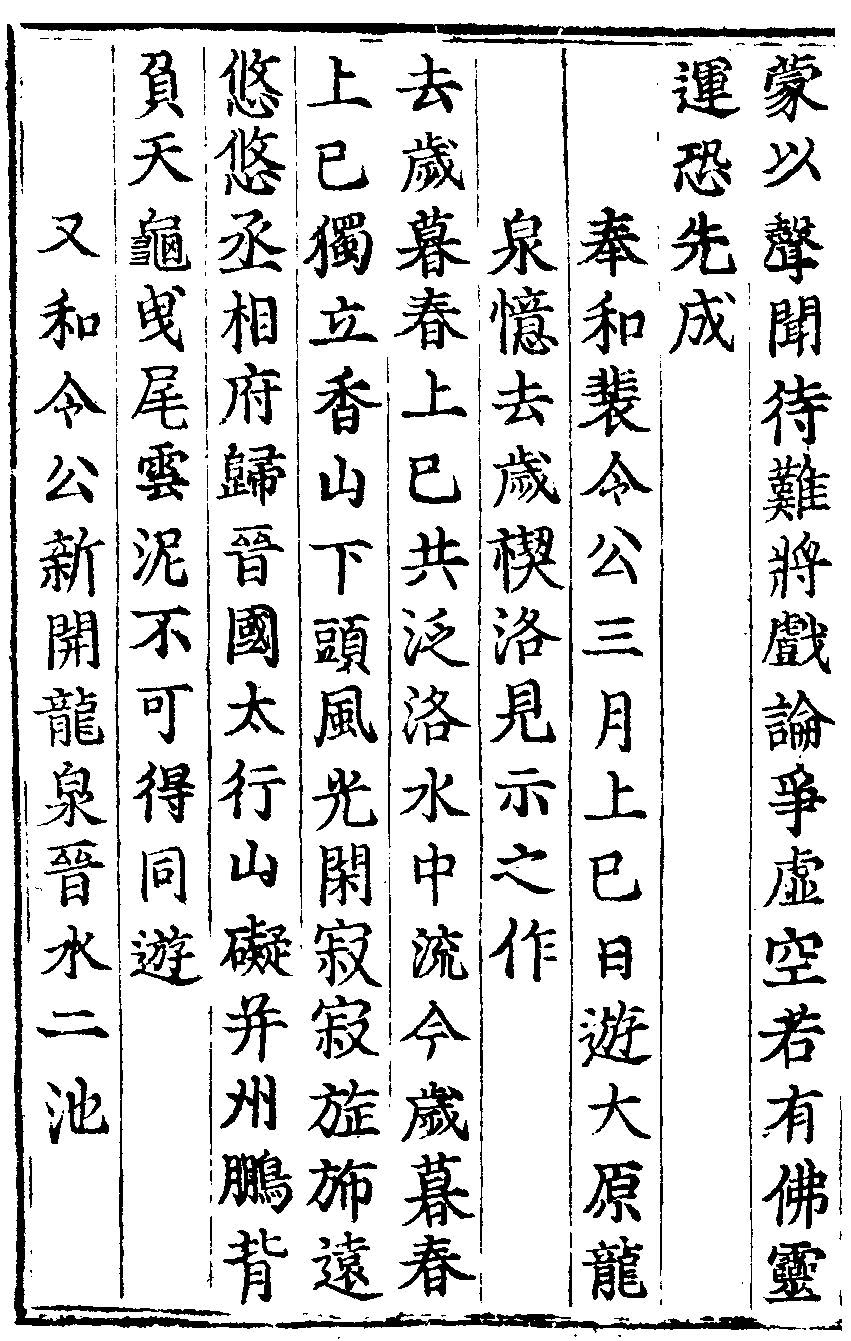 蒙以聲聞待難將戲論爭虛空若有佛靈
運恐先成
奉和裴令公三月上巳日遊大原龍
泉憶去歲禊洛見示之作
去歲暮春上巳共泛洛水中流今歲暮春
上巳獨立香山下頭風光閑寂寂旌斾遠
悠悠丞相府歸晉國太行山礙并州鵬背
負天龜曳尾雲泥不可得同遊
又和令公新開龍泉晉水二池